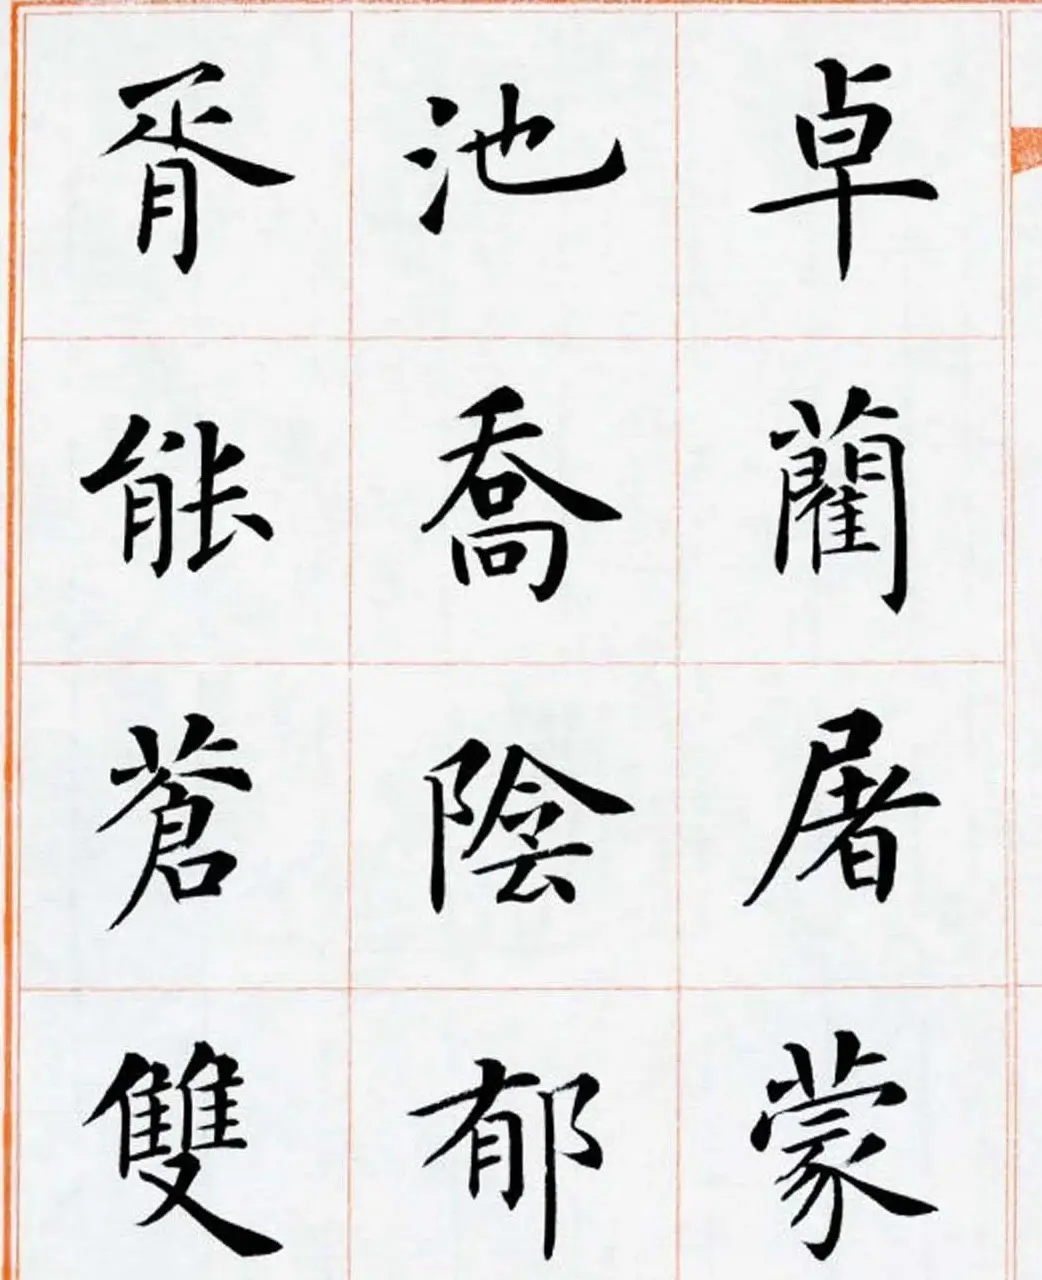 卓藺屠蒙
池喬陰郁
胥能蒼雙